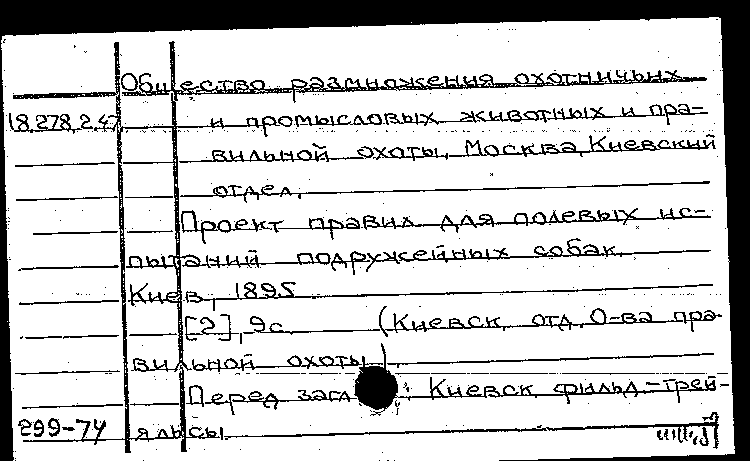 Общество размножения охотничьих
18.278.2.47 и промысловых животных и пра-
вильной охоты, Москва, Киевский
отдел.
Проект правил для полевых ис-
пытаний подружейных собак.
Киев, 1895
[2], 9с. (Киевск. отд. О-ва пра-
вильной охоты).
Перед загл.: Киевск. фильд.-трей-
299-74 яльсы.